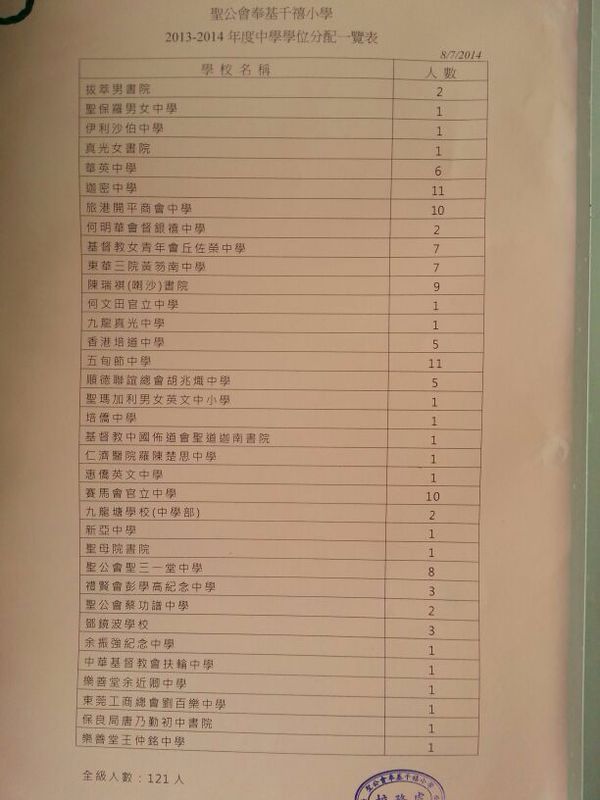 聖公會奉基千禧小學
2013-2014 年度中學學位分配一覽表
8/7/2014
學校名稱 人數
拔萃男書院 2
聖保羅男女中學 1
伊利沙伯中學 1
真光女書院 1
華英中學 6
迦密中學 11
旅港開平商會中學 10
何明華會督銀禧中學 2
基督教女青年會丘佐榮中學 7
東華三院黃笏南中學 7
陳瑞祺(喇沙)書院 9
何文田官立中學 1
九龍真光中學 1
香港培道中學 5
五旬節中學 11
順德聯誼總會胡兆熾中學 5
聖瑪加利男女英文中小學 1
培僑中學 1
基督教中國佈道會聖道迦南書院 1
仁濟醫院羅陳楚思中學 1
惠僑英文中學 1
賽馬會官立中學 10
九龍塘學校(中學部) 2
新亞中學 1
聖母院書院 1
聖公會聖三一堂中學 8
禮賢會彭學高紀念中學 3
聖公會蔡功譜中學 2
鄧鏡波學校 3
余振強紀念中學 1
中華基督教會扶輪中學 1
樂善堂余近卿中學 1
東莞工商總會劉百樂中學 1
保良局唐乃勤初中書院 1
樂善堂王仲銘中學 1
全級人數：121 人
聖公會奉基千禧小學
校務處